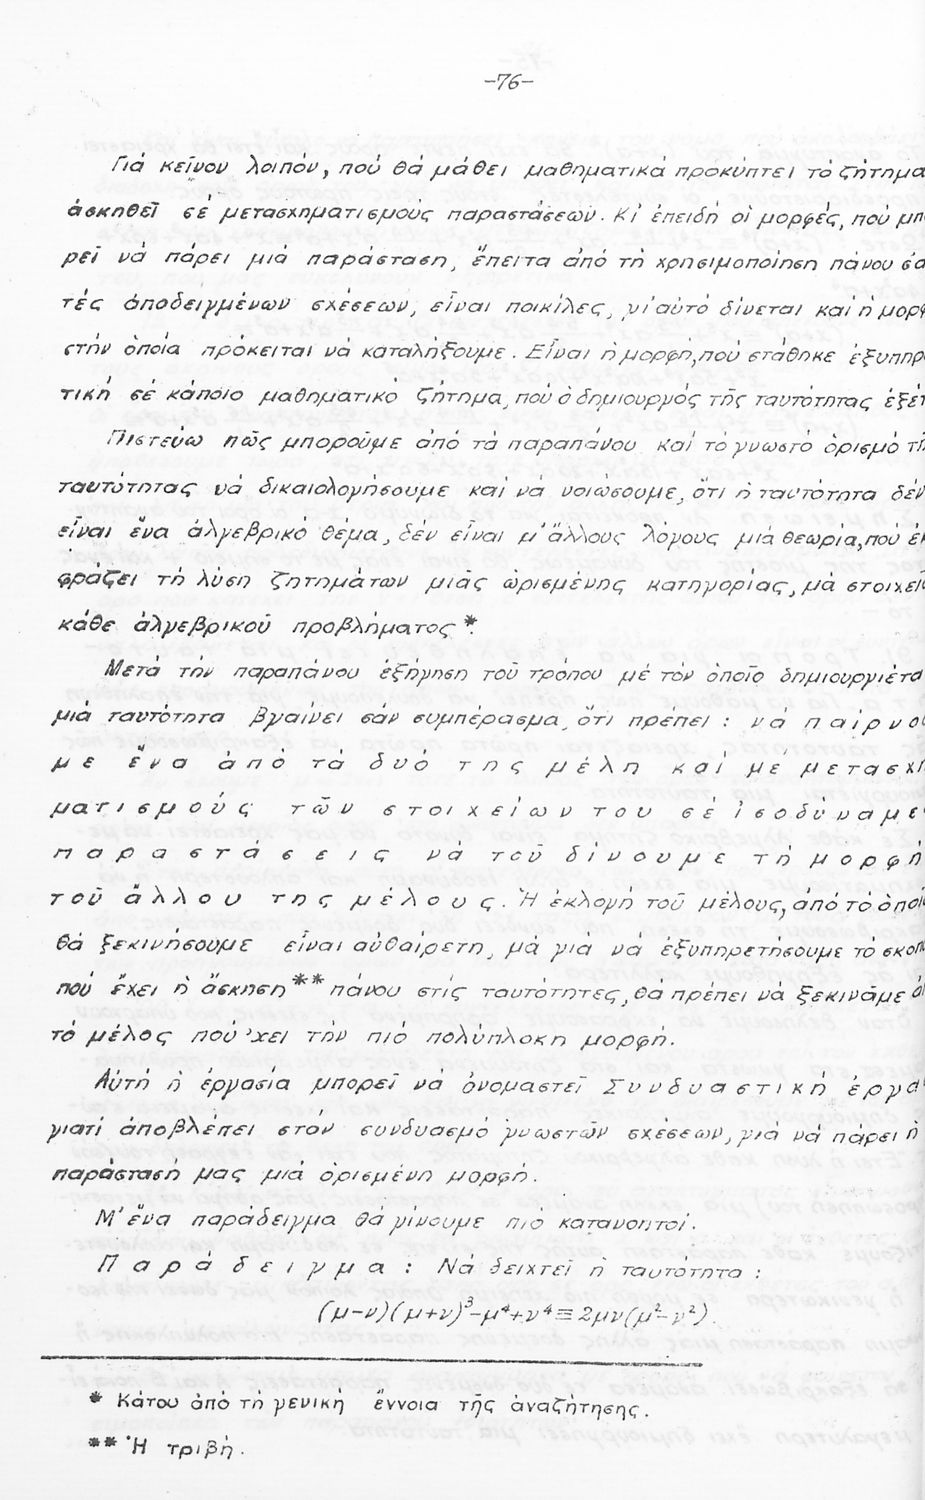 -76-
Γιά κεῖνον λοιπόν, πού θά μάθει μαθηματικά προκύπτει τό ζήτημα
ἀσκηθεῖ σέ μετασχηματισμούς παραστάσεων. Κι ἐπειδή οἱ μορφές, πού μπο
ρεῖ νά πάρει μιά παράσταση, ἔπειτα ἀπό τή χρησιμοποίηση πάνου σα
τές ἀποδειγμένων σχέσεων, εἶναι ποικίλες, γι'αὐτό δίνεται και ἡ μορφ
στήν ὁποία πρόκειται νά καταλήξουμε. Εἶναι ἡ μορφή, πού στάθηκε ἐξυπηρ
τική σέ κάποιο μαθηματικό ζήτημα, πού ὁ δημιουργός τῆς ταυτότητας ἐξέτ
Πιστεύω πῶς μποροῦμε ἀπό τά παραπάνου καί τό γνωστό ὁρισμό τῆ
ταυτότητας νά δικαιολογήσουμε καί νά νοιώσουμε, ὅτι ἡ ταυτότητα δέν
εἶναι ἕνα ἀλγεβρικό θέμα, δέν εἶναι μ'ἄλλους λόγους μιά θεωρία, πού ἐκ
φράζει τή λύση ζητημάτων μιᾶς ὡρισμένης κατηγορίας, μά στοιχεῖο
κάθε ἀλγεβρικοῦ προβλήματος*.
Μετά τήν παραπάνου ἐξήγηση τοῦ τρόπου μέ τόν ὁποῖο δημιουργιέτα
μιά ταυτότητα βγαίνει σάν συμπέρασμα, ὅτι πρέπει : νά παίρνου
με ἕνα ἀπό τά δυό της μέλη καί με μετασχη
ματισμούς τῶν στοιχείων του σέ ἰσοδύναμε
παραστάσεις νά τοῦ δίνουμε τή μορφή
τοῦ ἄλλου της μέλους. Ἡ ἐκλογή τοῦ μέλους, ἀπό τό ὁποῖ
θά ξεκινήσουμε εἶναι αὐθαίρετη, μά για νά ἐξυπηρετήσουμε τό σκοπ
πού ἔχει ἡ ἄσκηση** πάνου στίς ταυτότητες, θά πρέπει νά ξεκινᾶμε ἀ
τό μέλος πού'χει τήν πιό πολύπλοκη μορφή.
Αὐτή ἡ ἐργασία μπορεῖ νά ὀνομαστεῖ Συνδυαστική ἐργα
γιατί ἀποβλέπει στόν συνδυασμό γνωστῶν σχέσεων, γιά νά πάρει ἡ
παράστασή μας μιά ὁρισμένη μορφή.
Μ'ἕνα παράδειγμα θά γίνουμε πιό κατανοητοί.
Παράδειγμα : Νά δειχτεῖ ἡ ταυτότητα :
(μ-ν)(μ+ν)³-μ⁴+ν⁴≡2μν(μ²-ν²).
* Κάτου ἀπό τή γενική ἔννοια τῆς ἀναζήτησης.
** Ἡ τριβή.